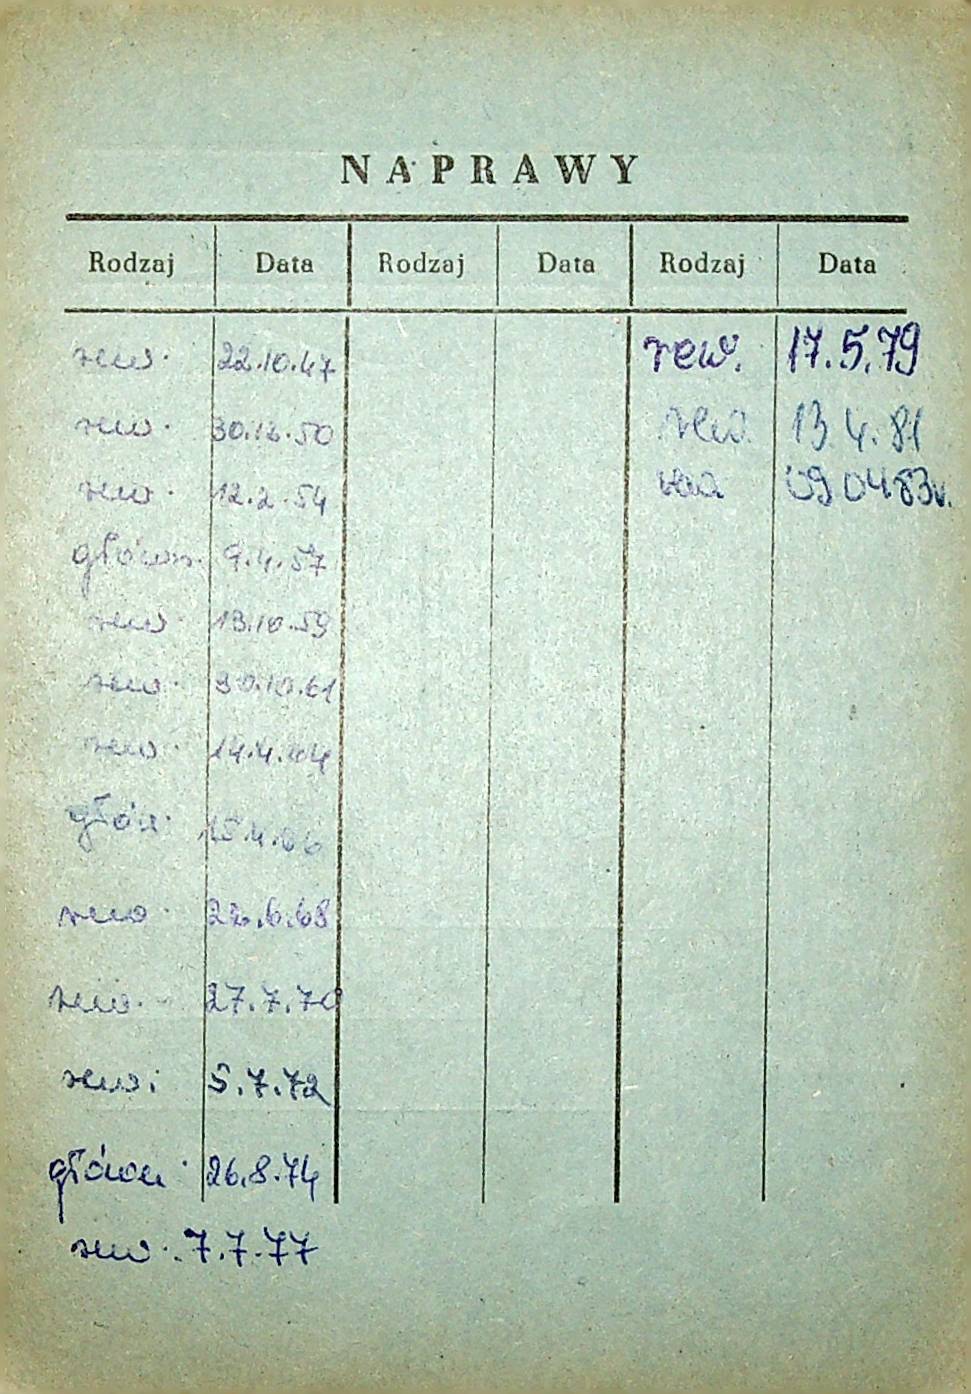 NAPRAWY
Rodzaj Data Rodzaj Data Rodzaj Data
rew. 22.10.47 rew. 17.5.79
rew. 30.12.50 rew. 13.4.81
rew. 12.2.54 rew 09 04 83r.
główn. 9.4.57
rew. 13.10.59
rew. 30.10.61
rew. 14.4.64
głów. 15.4.66
rew. 22.6.68
rew. 27.7.70
rew. 5.7.72
główn. 26.8.74
rew. 7.7.77